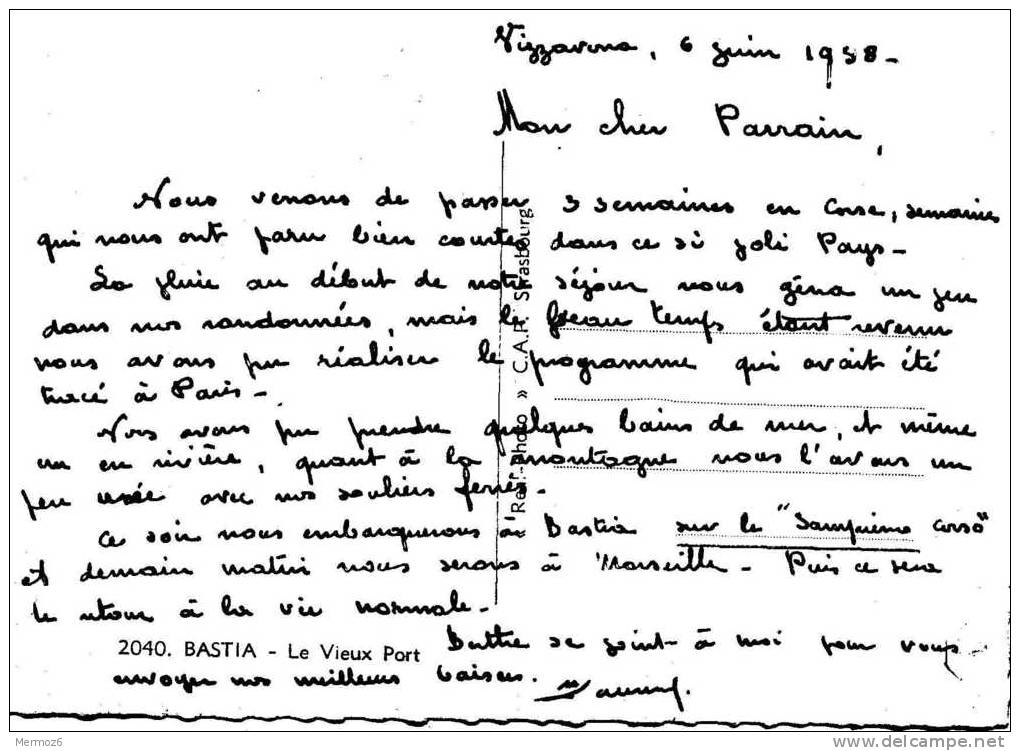 Vizzavona, 6 juin 1958 -
Mon cher Parrain,
Nous venons de passer 3 semaines en Corse, semaines
qui nous ont paru bien courtes dans ce si joli Pays -
La pluie au début de notre séjour nous gêna un peu
dans nos randonnées, mais le beau temps étant revenu
nous avons pu réaliser le programme qui avait été
tracé à Paris -
Nous avons pu prendre quelques bains de mer, et même
un en rivière, quant à la montagne nous l'avons un
peu usée avec nos souliers ferrés -
Ce soir nous embarquerons à Bastia sur le "Sampiero Corso"
et demain matin nous serons à Marseille - Puis ce sera
le retour à la vie normale -
se joint à moi pour vous
envoyer nos meilleurs baisers.
2040. BASTIA - Le Vieux Port
" Réal-Photo » C.A.P. Strasbourg
Mermoz6
www.delcampe.net